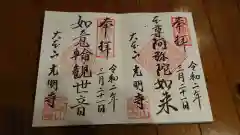 奉拝
本尊阿弥陀如来
令和二年
三月二十一日
光明寺
奉拝
如意輪観世音
令和二年
三月二十一日
光明寺